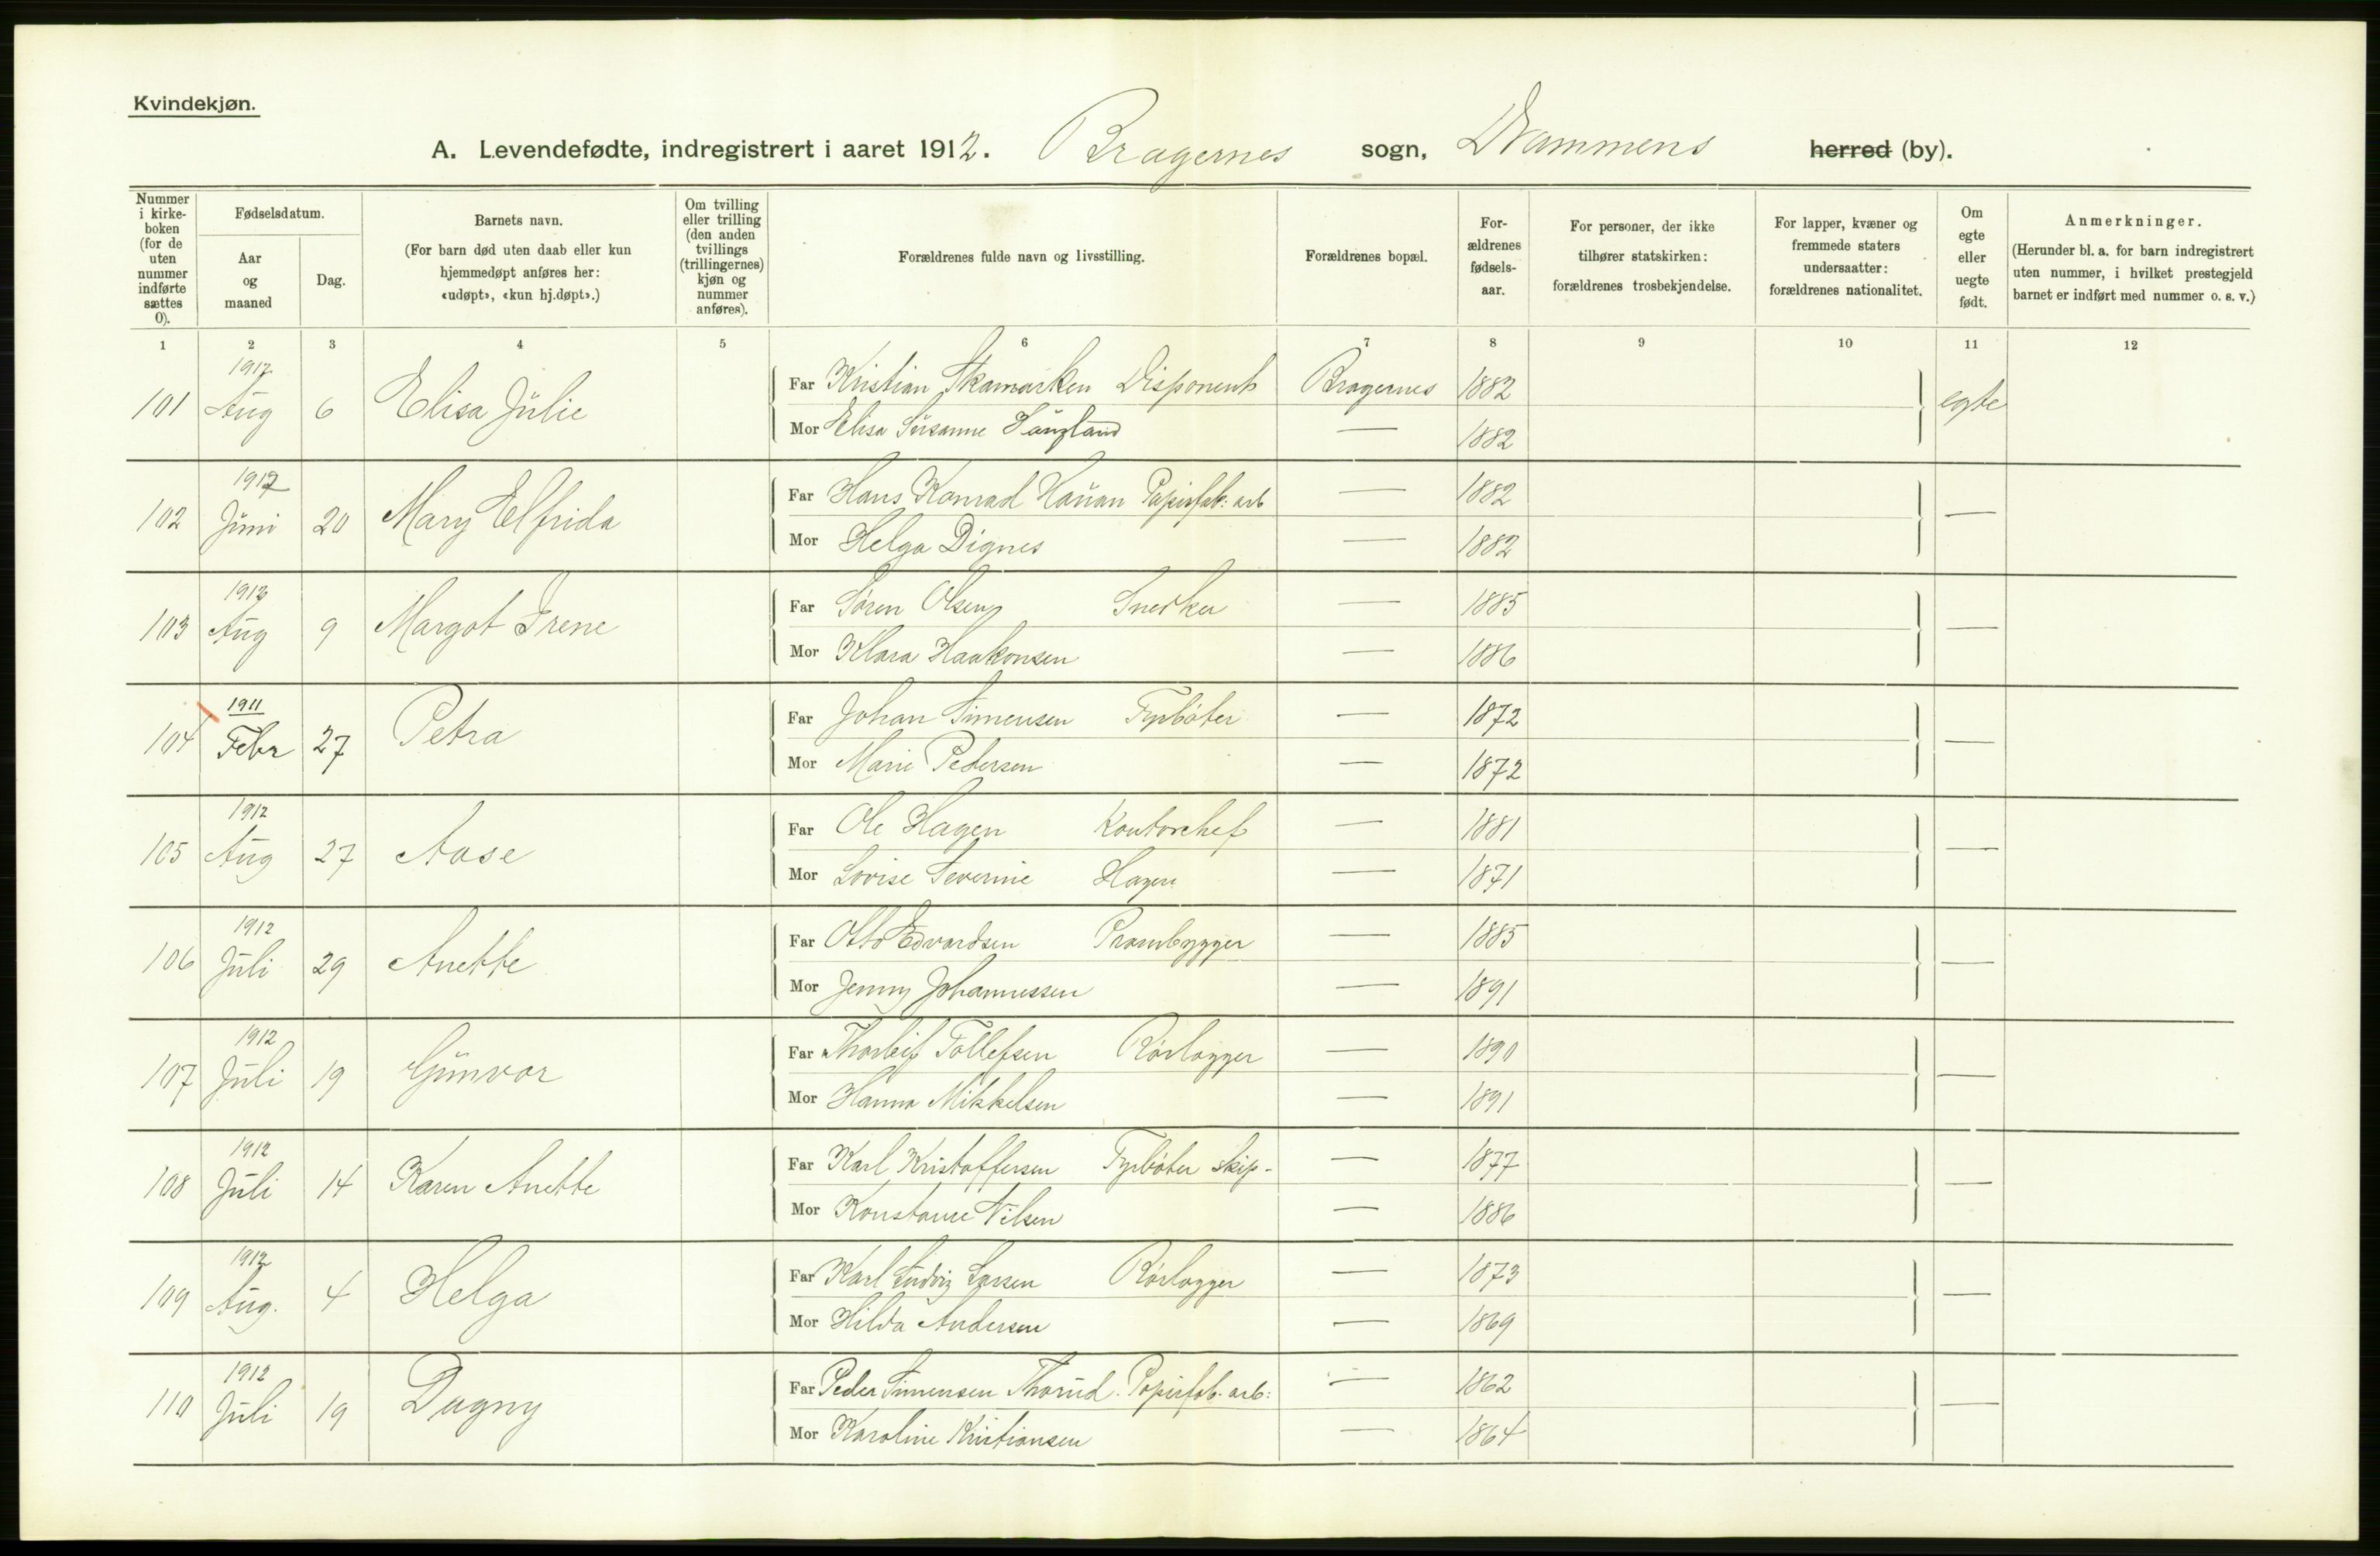 Kvindekjøn.
A. Levendefødte, indregistrert i aaret 1912. Bragernes sogn, Drammens herred (by).
Nummer i kirke-boken (for de uten nummer indførte sættes 0).
Fødselsdatum.
Aar og maaned
Dag.
Barnets navn.
(For barn død uten daab eller kun hjemmedøpt anføres her: «udøpt», «kun hj.døpt».)
Om tvilling eller trilling (den anden tvillings (trillingernes) kjøn og nummer anføres).
Forældrenes fulde navn og livsstilling.
Forældrenes bopæl.
For-ældrenes fødsels-aar.
For personer, der ikke tilhører statskirken: forældrenes trosbekjendelse.
For lapper, kvæner og fremmede staters undersaatter: forældrenes nationalitet.
Om egte eller uegte født.
Anmerkninger.
(Herunder bl. a. for barn indregistrert uten nummer, i hvilket prestegjeld barnet er indført med nummer o. s. v.)
1 2 3 4 5 6 7 8 9 10 11 12
1912
101 Aug 6 Elisa Julie Far Kristian Skamarken Disponent Bragernes 1882 egte
Mor Elisa Susanne Haugland — 1882
1912
102 Juni 20 Mary Elfrida Far Hans Konrad Hauan Papirfab: arb — 1882 —
Mor Helga Dignes — 1882
1912
103 Aug 9 Margot Irene Far Søren Olsen Snedker — 1885 —
Mor Klara Haakonsen — 1886
1911
104 Febr 27 Petra Far Johan Simensen Fyrbøter — 1872 —
Mor Marie Pedersen — 1872
1912
105 Aug 27 Aase Far Ole Hagen Kontorchef — 1881 —
Mor Lovise Severine Hagen — 1871
1912
106 Juli 29 Anette Far Otto Edvardsen Prambygger — 1885 —
Mor Jenny Johannessen — 1891
1912
107 Juli 19 Gunvor Far Thorleif Tollefsen Rørlægger — 1890 —
Mor Hanna Mikkelsen — 1891
1912
108 Juli 14 Karen Anette Far Karl Kristoffersen Fyrbøter skip- — 1877 —
Mor Konstanse Nilsen — 1886
1912
109 Aug. 4 Helga Far Karl Ludvig Larsen Rørlægger — 1873 —
Mor Hilda Andersen — 1869
1912
110 Juli 19 Dagny Far Peder Simensen Thorud. Papirfab. arb: — 1862 —
Mor Karoline Kristiansen — 1864